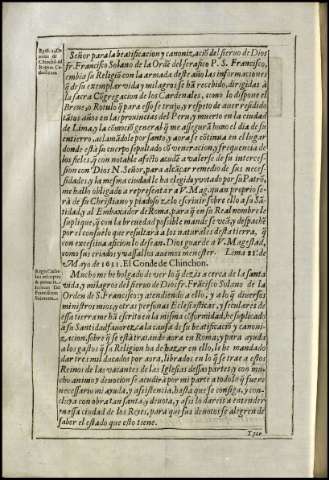 Señor para la beatificacion y canonizaciõ del sieruo de Dios
fr. Francisco Solano de la Ordẽ del serafico P. S. Francisco,
embia su Religiõ con la armada deste año las informaciones
q̃ de su exemplar vida y milagros se hã recebido, dirigidas à
la sacra Cõgregacion de los Cardenales, como lo dispone el
Breue, o Rotulo q̃ para esso se trajo, y respeto de auer residido
tãtos años en las prouincias del Peru, y muerto en la ciudad
de Lima, y la cõmociõ general q̃ me assegurã huuo el dia de su
entierro, aclamãdole por santo, y aora se cõtinua en el lugar
donde està su cuerpo sepultado cõ veneracion, y frequencia de
los fieles, q̃ con notable afecto acudẽ a valerse de su interces-
sion con Dios N. Señor, para alcãçar remedio de sus neces-
sidades, y la mesma ciudad le ha elegido y votado por su Patrõ,
me hallo obligado a representar a V. Mag. quan proprio se-
rà de su Christiano y piadoso zelo escriuir sobre ello a su Sã-
tidad, y al Embaxador de Roma, para q̃ en su Real nombre le
suplique, q̃ con la breuedad possible mande se veã, y despachẽ
por el consuelo que resultarà a los naturales desta tierra, q̃
con excessiua aficion lo dessean. Dios guarde a V. Magestad,
como sus criados y vassallos auemos menester. Lima
de Mayo de 1631. El Conde de Chinchon.
Mucho me he holgado de ver lo q̃ dezis acerca de la santa
vida, y milagros del sieruo de Dios fr. Frãcisco Solano de la
Orden de S. Francisco, y atendiendo a ello, y a lo q̃ diuersos
ministros mios, y otras personas Eclesiasticas, y seculares de
essa tierra me hã escrito en la misma cõformidad, he suplicado
a su Santidad fauorezca la causa de su beatificaciõ y canoni-
zacion, sobre q̃ se està tratando aora en Roma; y para ayuda
a los gastos q̃ su Religion ha de hazer en ello, le he mandado
dar tres mil ducados por aora, librados en lo q̃ se trae a estos
Reinos de las vacantes de las Iglesias dessas partes, y con mu-
cho animo y deuocion se acudirà por mi parte a todo lo q̃ fuere
necessario mi ayuda, y assistencia, hasta que se consiga, y con-
cluya con obra tan santa, y deuota, y assi lo dareis a entender
a essa ciudad de los Reyes, para que sus deuotos se alegren de
saber el estado que esto tiene.